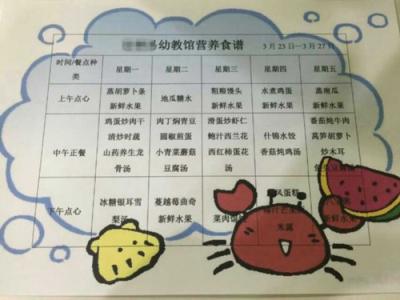 幼教馆营养食谱 3月23日—3月27日
时间/餐点种类 星期一 星期二 星期三 星期四 星期五
上午点心 蒸胡萝卜条 新鲜水果 地瓜糖水 粗粮馒头 新鲜水果 水煮鸡蛋 新鲜水果 蒸南瓜 新鲜水果
中午正餐 鸡蛋炒肉干 清炒时蔬 山药养生龙骨汤 肉丁焖青豆 圆椒煎蛋 小青菜蘑菇豆腐汤 滑蛋炒虾仁 鲍汁西兰花 西红柿蛋花汤 什锦水饺 香菇炖鸡汤 番茄炖牛肉 莴笋胡萝卜炒木耳
下午点心 冰糖银耳雪梨汤 蔓越莓曲奇 新鲜水果 菜肉馄饨